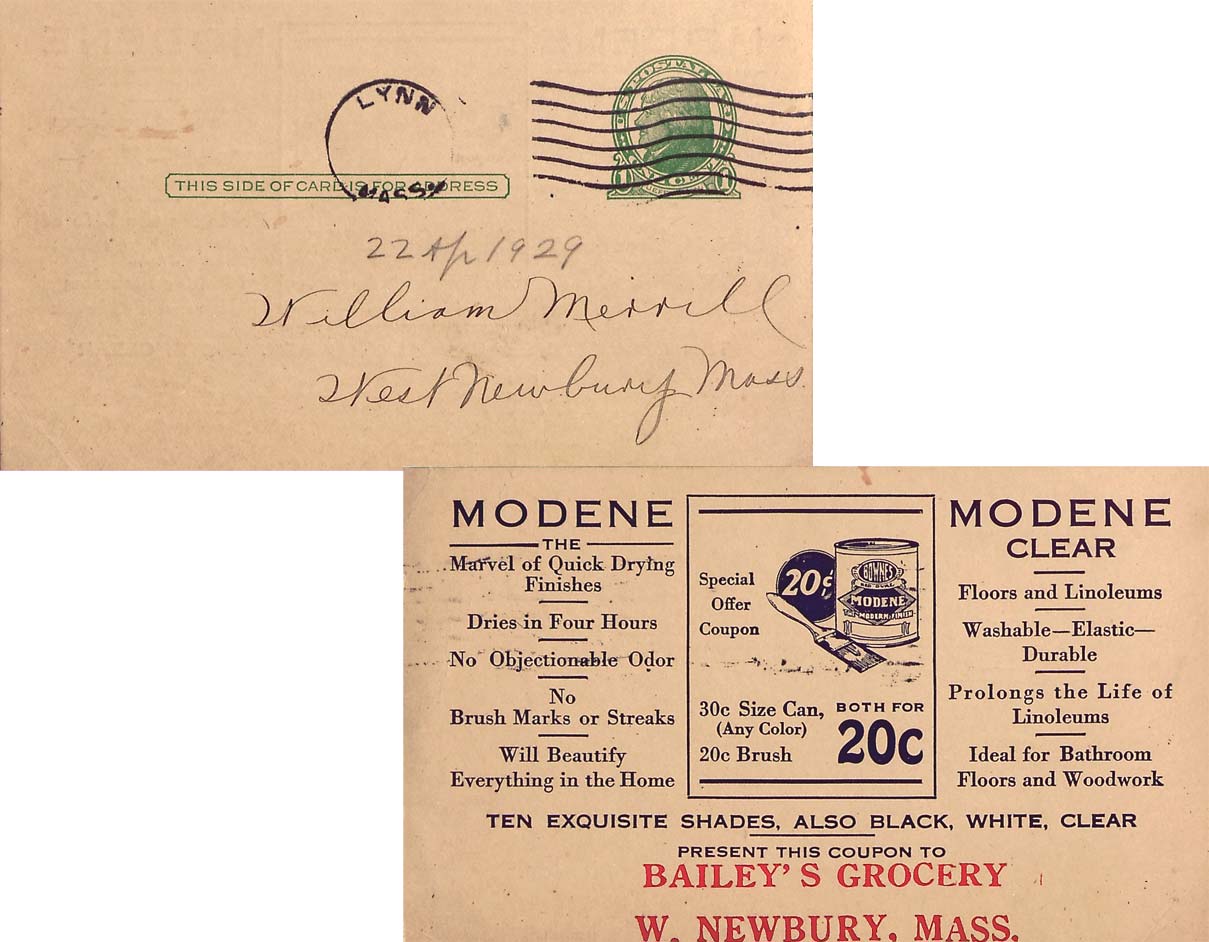 LYNN
MASS
U.S. POSTAL CARD
1 1
THIS SIDE OF CARD IS FOR ADDRESS
22 Ap 1929
William Merrill
West Newbury Mass.
MODENE
THE
Marvel of Quick Drying
Finishes
Dries in Four Hours
No Objectionable Odor
No
Brush Marks or Streaks
Will Beautify
Everything in the Home
Special
Offer
Coupon
20¢
MODENE
30c Size Can,
(Any Color)
20c Brush
BOTH FOR
20c
MODENE
CLEAR
Floors and Linoleums
Washable—Elastic—
Durable
Prolongs the Life of
Linoleums
Ideal for Bathroom
Floors and Woodwork
TEN EXQUISITE SHADES, ALSO BLACK, WHITE, CLEAR
PRESENT THIS COUPON TO
BAILEY'S GROCERY
W. NEWBURY, MASS.